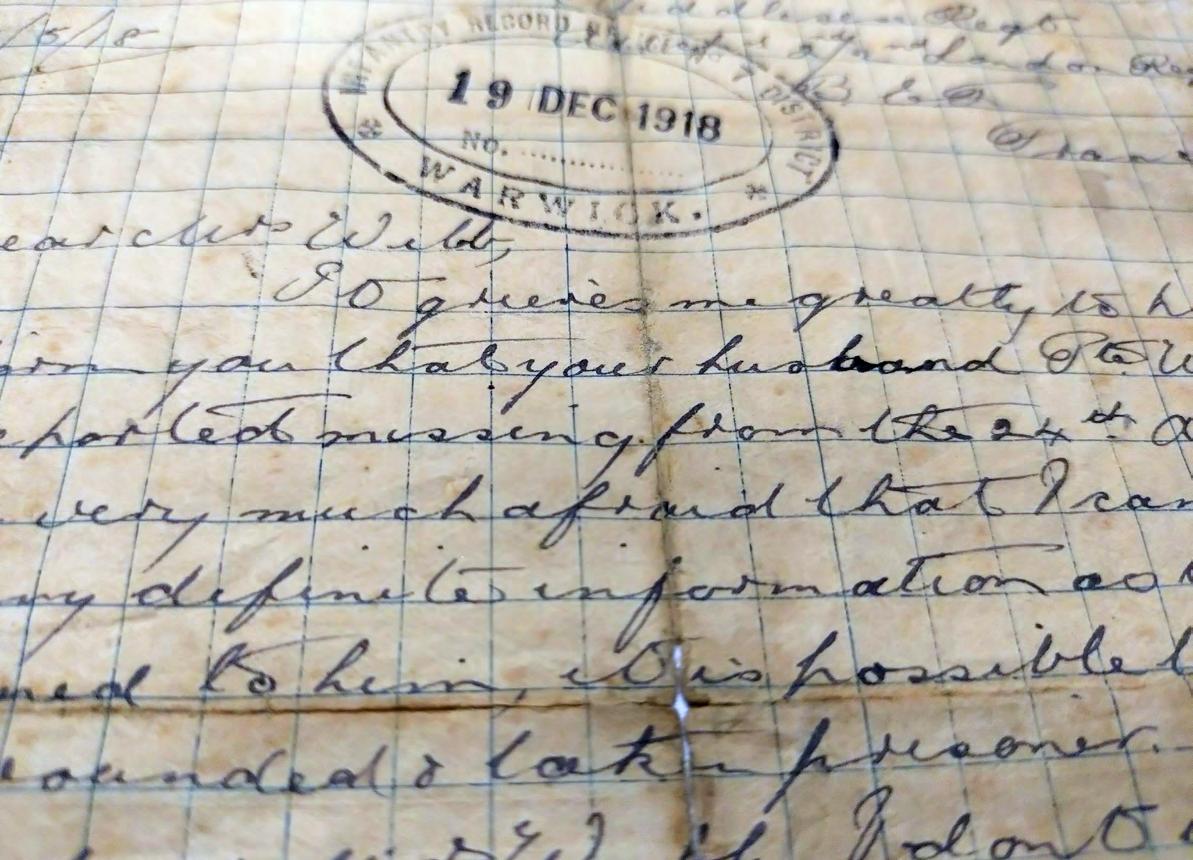 /5/18
Regt
INFANTRY RECORD
DISTRICT
19 DEC 1918
No. ................
WARWICK.
ear Mrs Webb,
It grieves me greatly to h
you that your husband Pte W
eported missing from the 24th
very much afraid that I can
ny definite information as
ned to him, it is possible
ounded & taken prisoner.
I don't